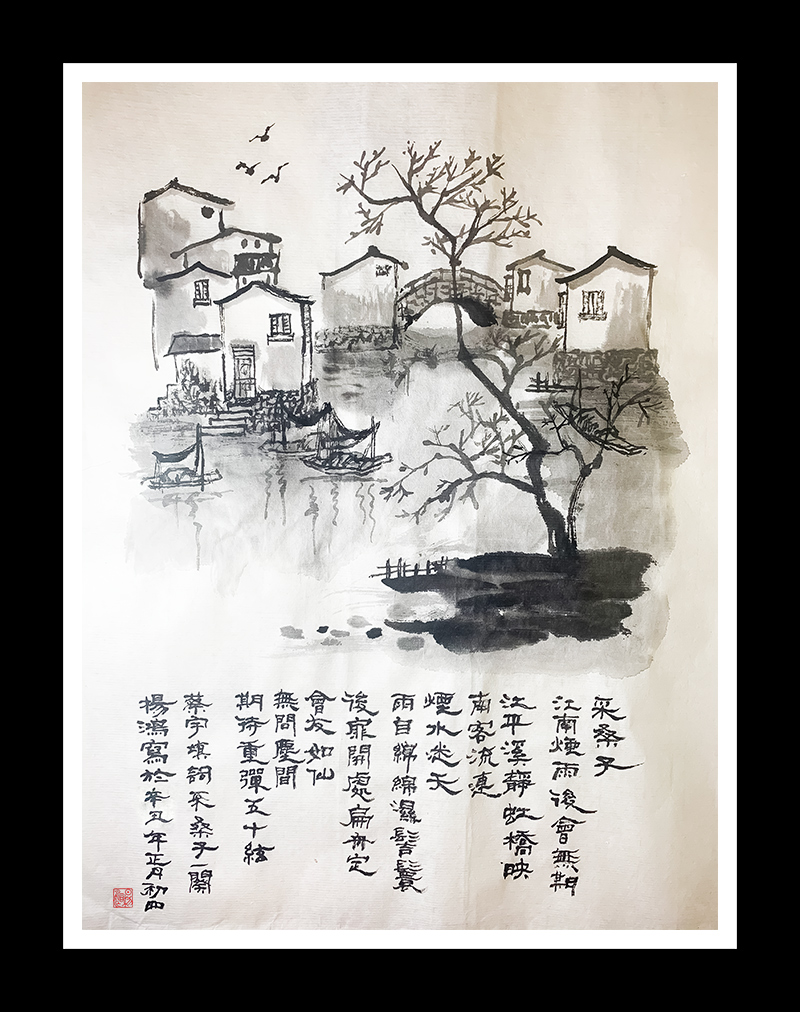 采桑子
江南煙雨後會無期
江平溪靜虹橋映
南客流連
煙水淡天
雨自綿綿濕髻鬟
後扉開處扁舟定
會友如仙
無問塵間
期待重彈五十絃
蔡宇琪詞采桑子一闋
楊鴻寫於辛丑年正月初四